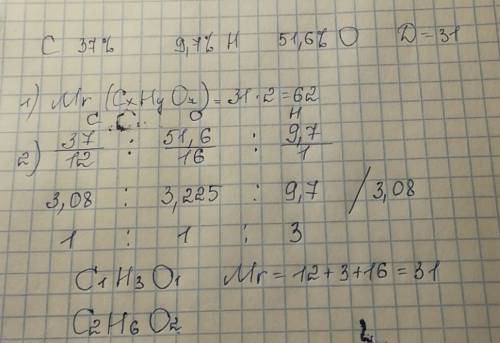 C 37% 9,7% H 51,6% O D = 31
1) Mr (CxHyOz) = 31 · 2 = 62
C O H
2) 37/12 : 51,6/16 : 9,7/1
3,08 : 3,225 : 9,7 / 3,08
1 : 1 : 3
C1H3O1 Mr = 12 + 3 + 16 = 31
C2H6O2